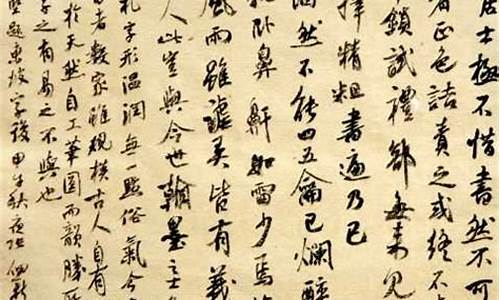 居士極不惜書然不可
者正色詰責之或終不
鎖試禮部每來見
擇精粗書遍乃已
然不能四五龠已爛醉
就臥鼻鼾如雷少焉
風雨雖謔弄皆有義
人此豈與今世翰墨之士
札字形溫潤無一點俗氣今
者數家雖規模古人自有
於天然自工筆圓而韻勝所
子之有易之不與也
堅題東坡字後甲申秋夜